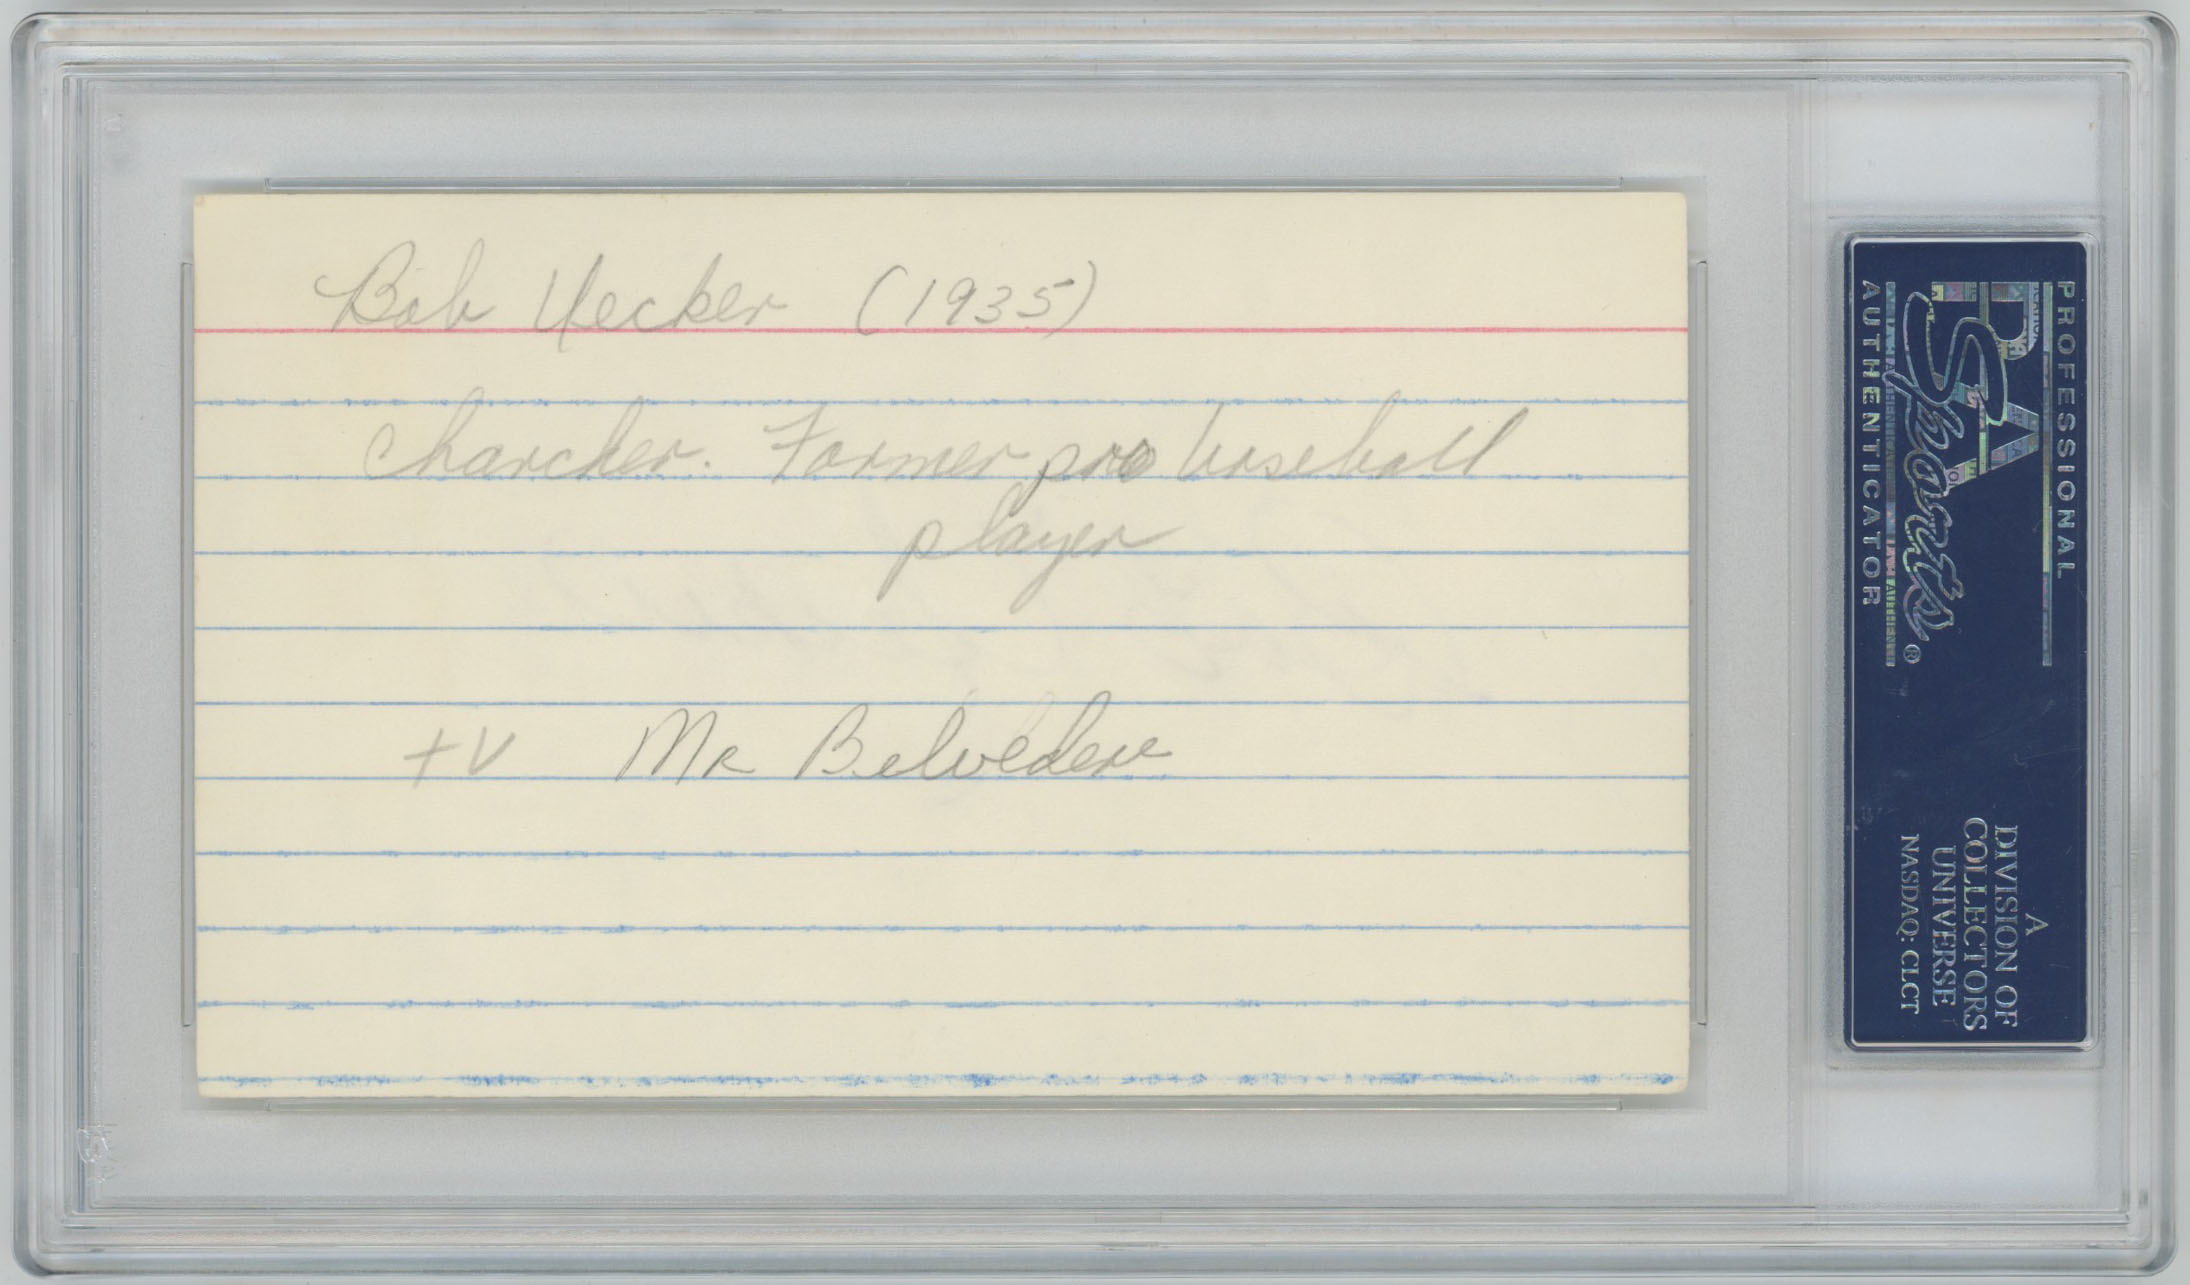 Bob Uecker (1935)
Charcher. Former pro baseball
player
TV Mr Belvedere
PROFESSIONAL
PSA
Sports®
AUTHENTICATOR
A
DIVISION OF
COLLECTORS
UNIVERSE
NASDAQ: CLCT